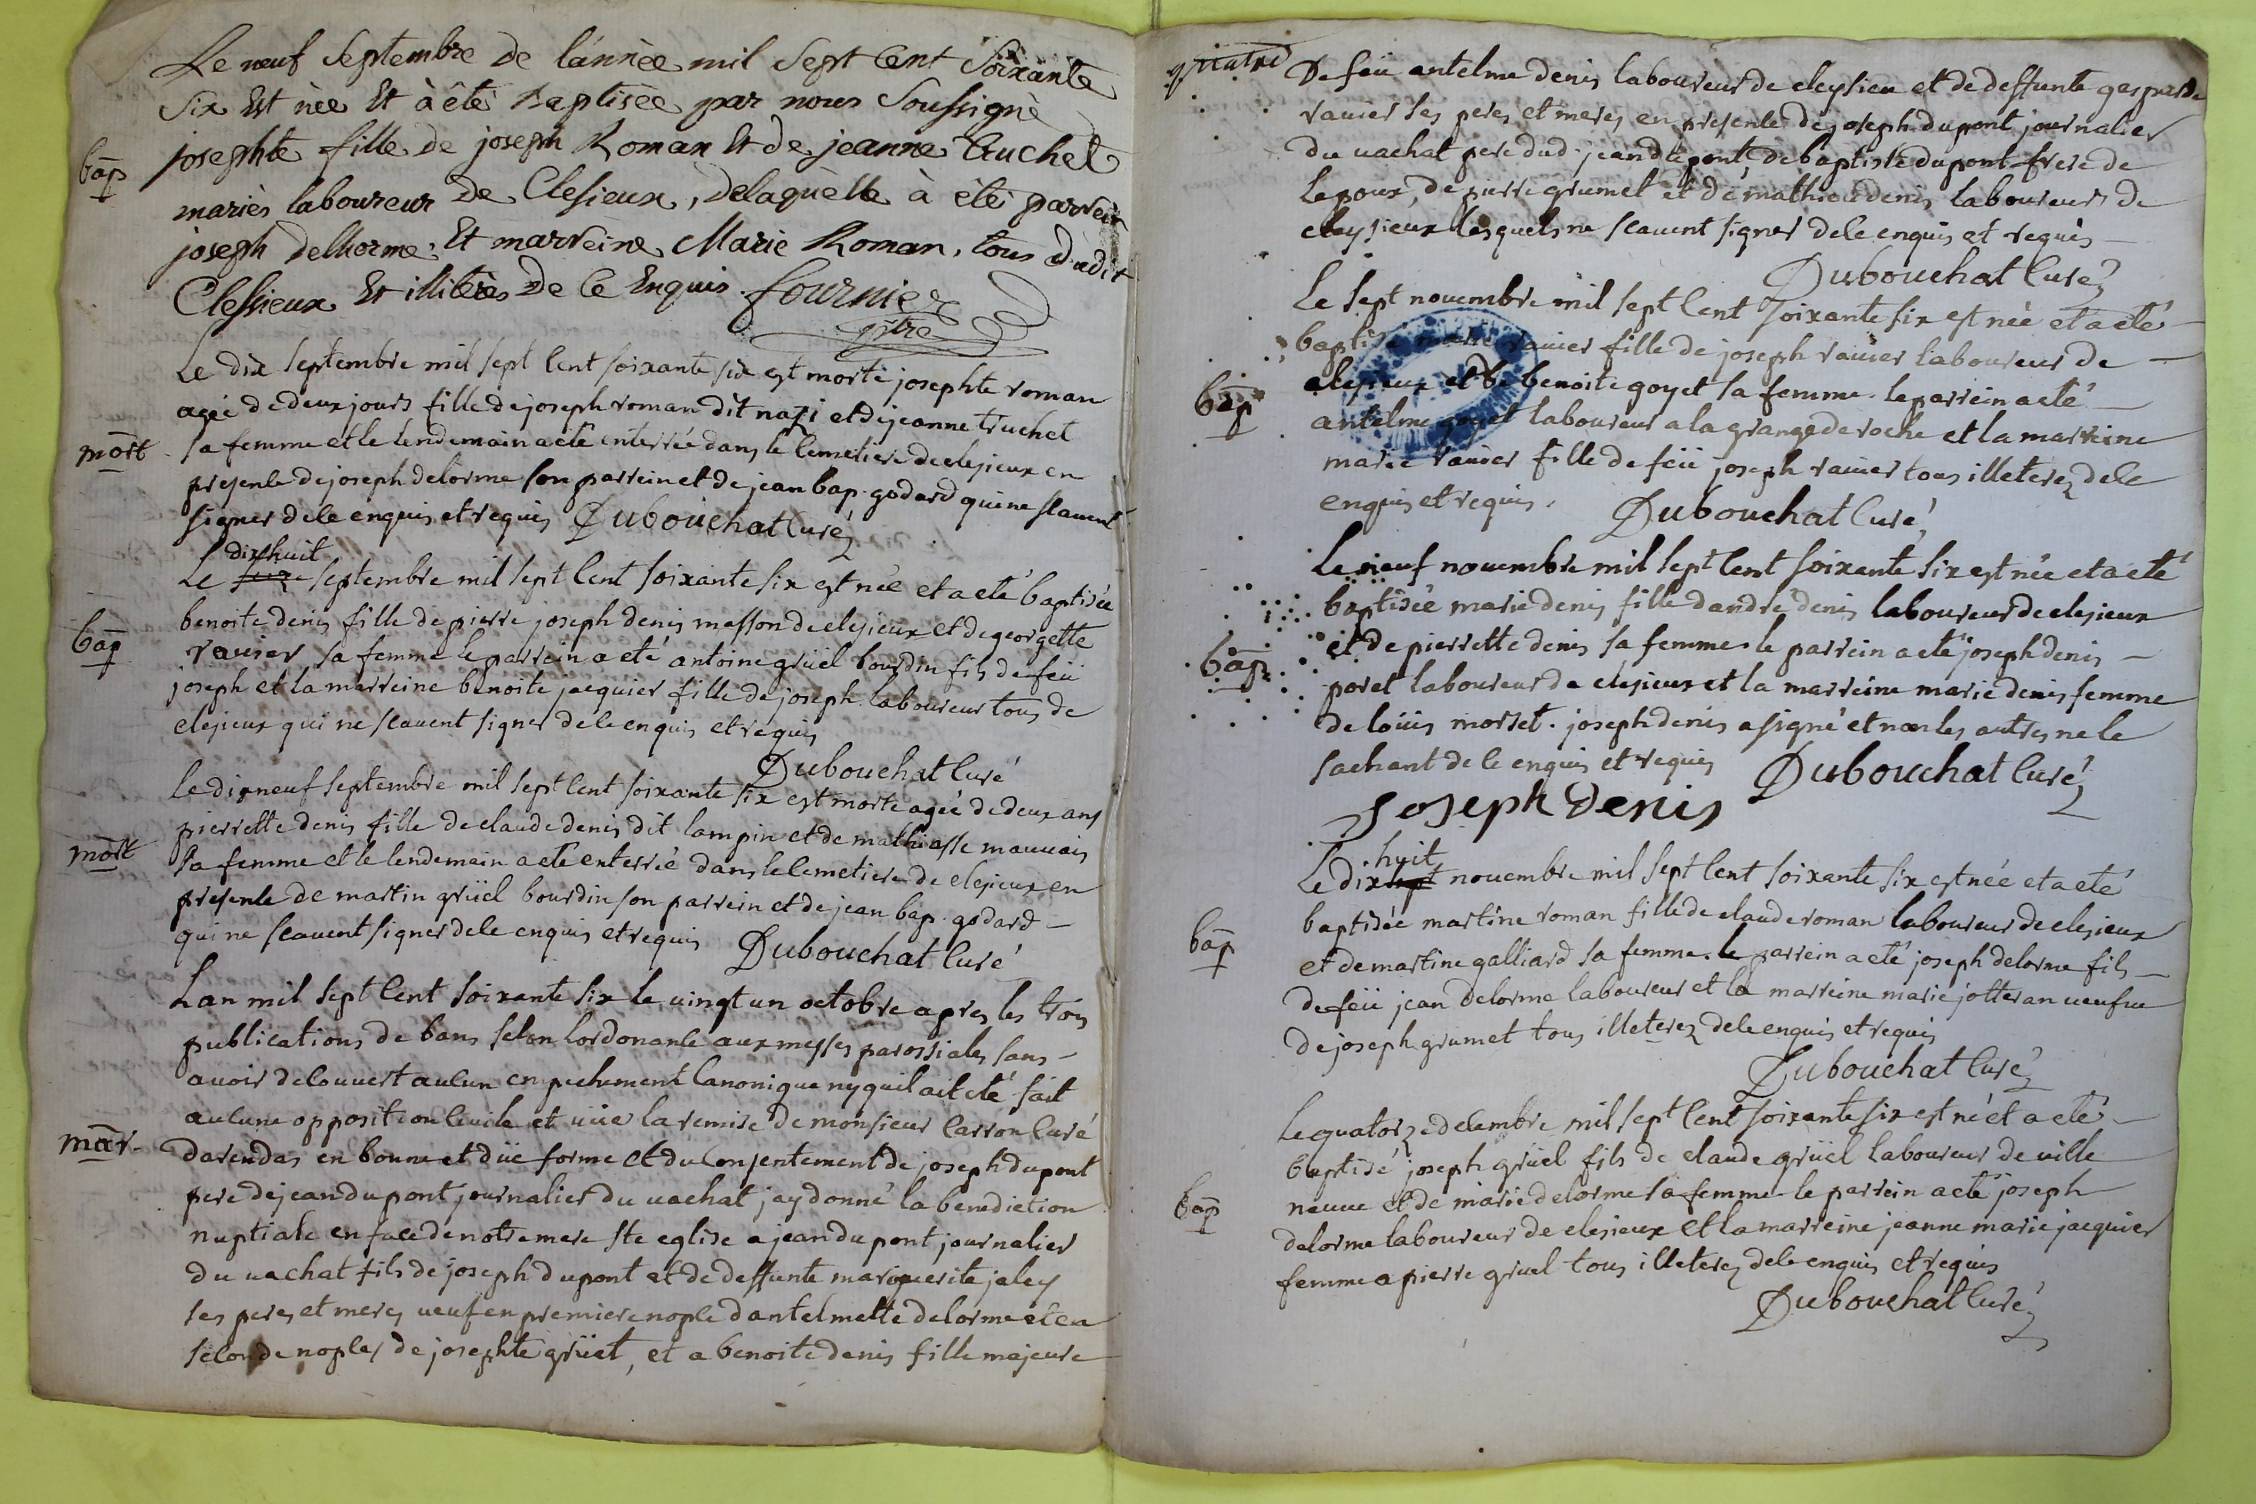 Le neuf Septembre de l'année mil Sept Cent Soixante
Six Est née Et à été Baptisée par nous Soussigné
bap
josephte fille de joseph Roman Et de jeanne Truchet
mariés laboureur De Clesieux, Delaquelle à été parrein
joseph Delhorme, Et marreine Marie Roman, tous dudit
Clessieux Et illiterés De Ce Enquis. fournier
ptre
Le dix septembre mil sept Cent soixante six est morte josephte roman
agée de deux jours fille de joseph roman dit nazi et de jeanne truchet
mort
sa femme et le lendemain a eté enterrée dans le Cemetiere de clesieux en
presence de joseph delorme son parrein et de jean bap. godard qui ne scavent
signer de ce enquis et requis Dubouchat Curé
dixhuit
Le septembre mil sept Cent soixante six est née et a eté baptisée
bap
benoite denis fille de pierre joseph denis masson de clesieux et de georgette
ravier sa femme le parrein a eté antoine grüel bourdin fils de feü
joseph et la marreine benoite jacquier fille de joseph laboureur tous de
clesieux qui ne scavent signer de ce enquis et requis
Dubouchat Curé
Le dixneuf septembre mil sept Cent soixante six est morte agée de deux ans
pierrette denis fille de claude denis dit lampin et de mathiasse mauvais
mort
sa femme et le lendemain a eté enterrée dans le Cemetiere de clesieux en
presence de martin grüel bourdin son parrein et de jean bap. godard
qui ne scavent signer de ce enquis et requis Dubouchat Curé
Lan mil sept Cent soixante six le vingt un octobre apres les trois
publications de bans selon lordonance aux messes parossiales sans
avoir decouvert aucun enpechement Canonique ny quil ait eté fait
aucune opposition Civile et vüe la remise de monsieur Carron Curé
mar.
darendas en bonne et düe forme et du Consentement de joseph dupont
pere de jean dupont journalier du vachat jay donné la benediction
nuptiale en face de notre mere ste eglise a jean dupont journalier
du vachat fils de joseph dupont et de deffunte marguerite jaley
ses peres et meres veuf en premiere nopce dantelmette delorme et en
seconde nopces de josephte grüet, et a benoite denis fille majeure
De feü antelme denis laboureur de cleysieu et de deffunte gasparde
ravier ses peres et meres en presence de joseph dupont journalier
du vachat pere dud. jean dupont de baptiste dupont frere de
lepoux, de pierre grumet et de mathieu denis laboureurs de
cleysieux lesquels ne scavent signer de ce enquis et requis
Dubouchat Curé
Le sept novembre mil sept Cent soixante six est née et a eté
baptisée marie ravier fille de joseph ravier laboureur de
bap
clesieux et de benoite goyet sa femme. le parrein a eté
antelme goyet laboureur a la grange de roche et la marreine
marie ravier fille de feü joseph ravier tous illeterez de ce
enquis et requis. Dubouchat Curé
Le neuf novembre mil sept Cent soixante six est née et a eté
baptisée marie denis fille dandré denis laboureur de clesieux
bap
et de pierrette denis sa femme le parrein a eté joseph denis
poret laboureur de clesieux et la marreine marie denis femme
de loüis morset. joseph denis a signé et non les autres ne le
sachant de ce enquis et requis Dubouchat Curé
Joseph Denis
huit
Le dix sept novembre mil sept Cent soixante six est née et a eté
bap
baptisée martine roman fille de claude roman laboureur de clesieux
et de martine galliard sa femme. le parrein a eté joseph delorme fils
de feü jean delorme laboureur et la marreine marie jotteran veufve
de joseph grumet tous illeterez de ce enquis et requis
Dubouchat Curé
Le quatorze decembre mil sept Cent soixante six est né et a eté
baptisé joseph grüel fils de claude grüel laboureur de ville
bap
neuve et de marie delorme sa femme le parrein a eté joseph
delorme laboureur de clesieux et la marreine jeanne marie jacquier
femme a pierre gruel tous illeterez de ce enquis et requis
Dubouchat Curé